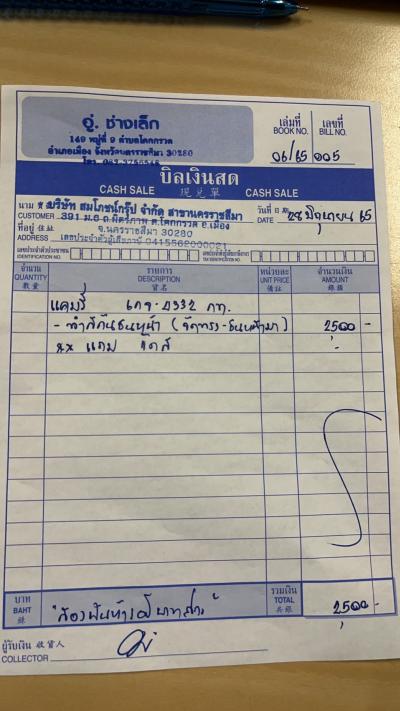 อู่. ช่างเล็ก
149 หมู่ที่ 9 ตำบลโคกกรวด
อำเภอเมือง จังหวัดนครราชสีมา 30280
โทร.
เล่มที่ เลขที่
BOOK NO. BILL NO.
06/65 005
บิลเงินสด
CASH SALE 現兑單 CASH SALE
นาม บริษัท สมโภชน์กรุ๊ป จำกัด สาขานครราชสีมา
CUSTOMER 391 ม.6 ถ.มิตรภาพ ต.โคกกรวด อ.เมือง
ที่อยู่ 住址 จ.นครราชสีมา 30280
ADDRESS เลขประจำตัวผู้เสียภาษี 0415562000021
วันที่ 日期 28 มิถุนายน 65
DATE
เลขประจำตัวประชาชน
IDENTIFICATION NO.
เลขประจำตัวผู้เสียภาษีอากร
TAX IDENTIFICATION NO.
จำนวน รายการ หน่วยละ จำนวนเงิน
QUANTITY DESCRIPTION UNIT PRICE AMOUNT
數量 貨名 價註 錢銀
แคมรี่ กท.
- ทำสีกันชนหน้า 2500 -
** แถม
บาท รวมเงิน
BAHT TOTAL 2500 -
銖 共銀
"สองพันห้าร้อยบาทถ้วน"
ผู้รับเงิน 收貨人
COLLECTOR